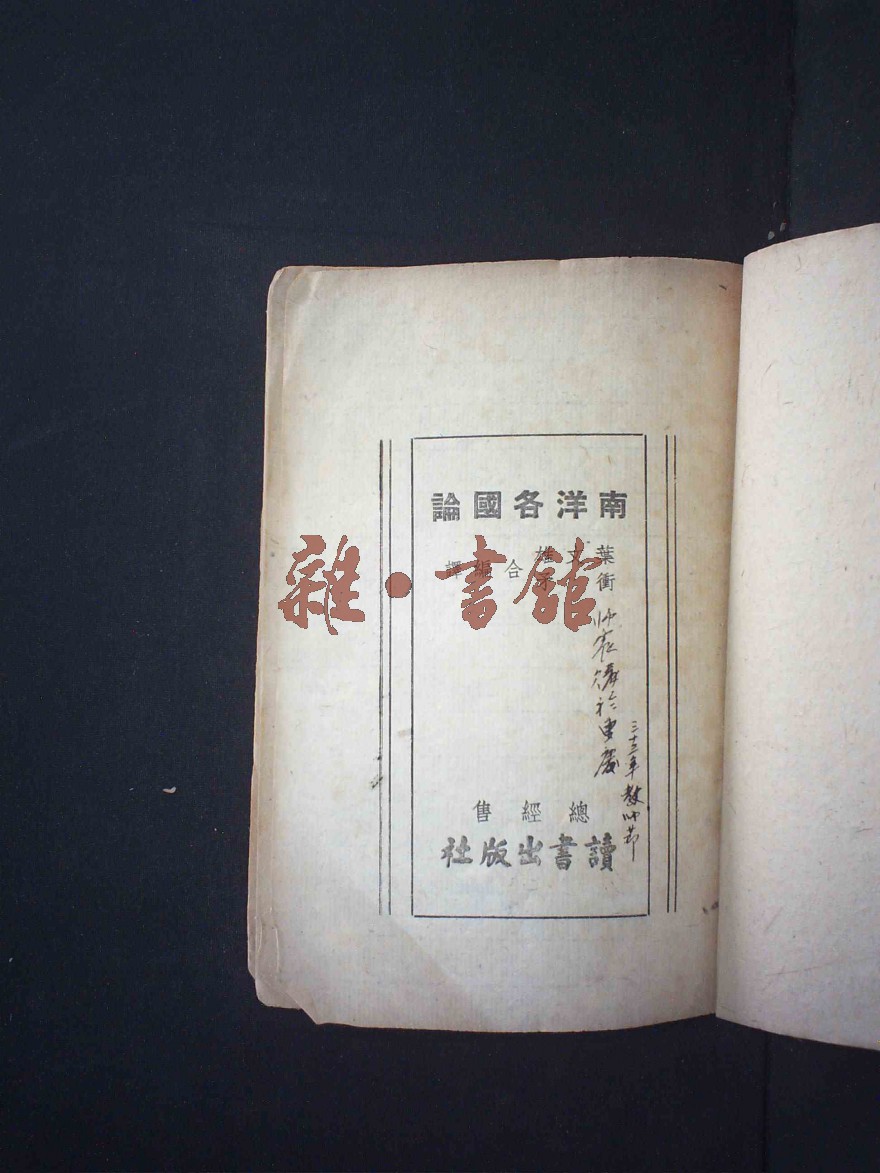 南洋各國論
葉文雄
衝 合編譯
雜·書館
購於重慶
三十三年教師節
總經售
讀書出版社